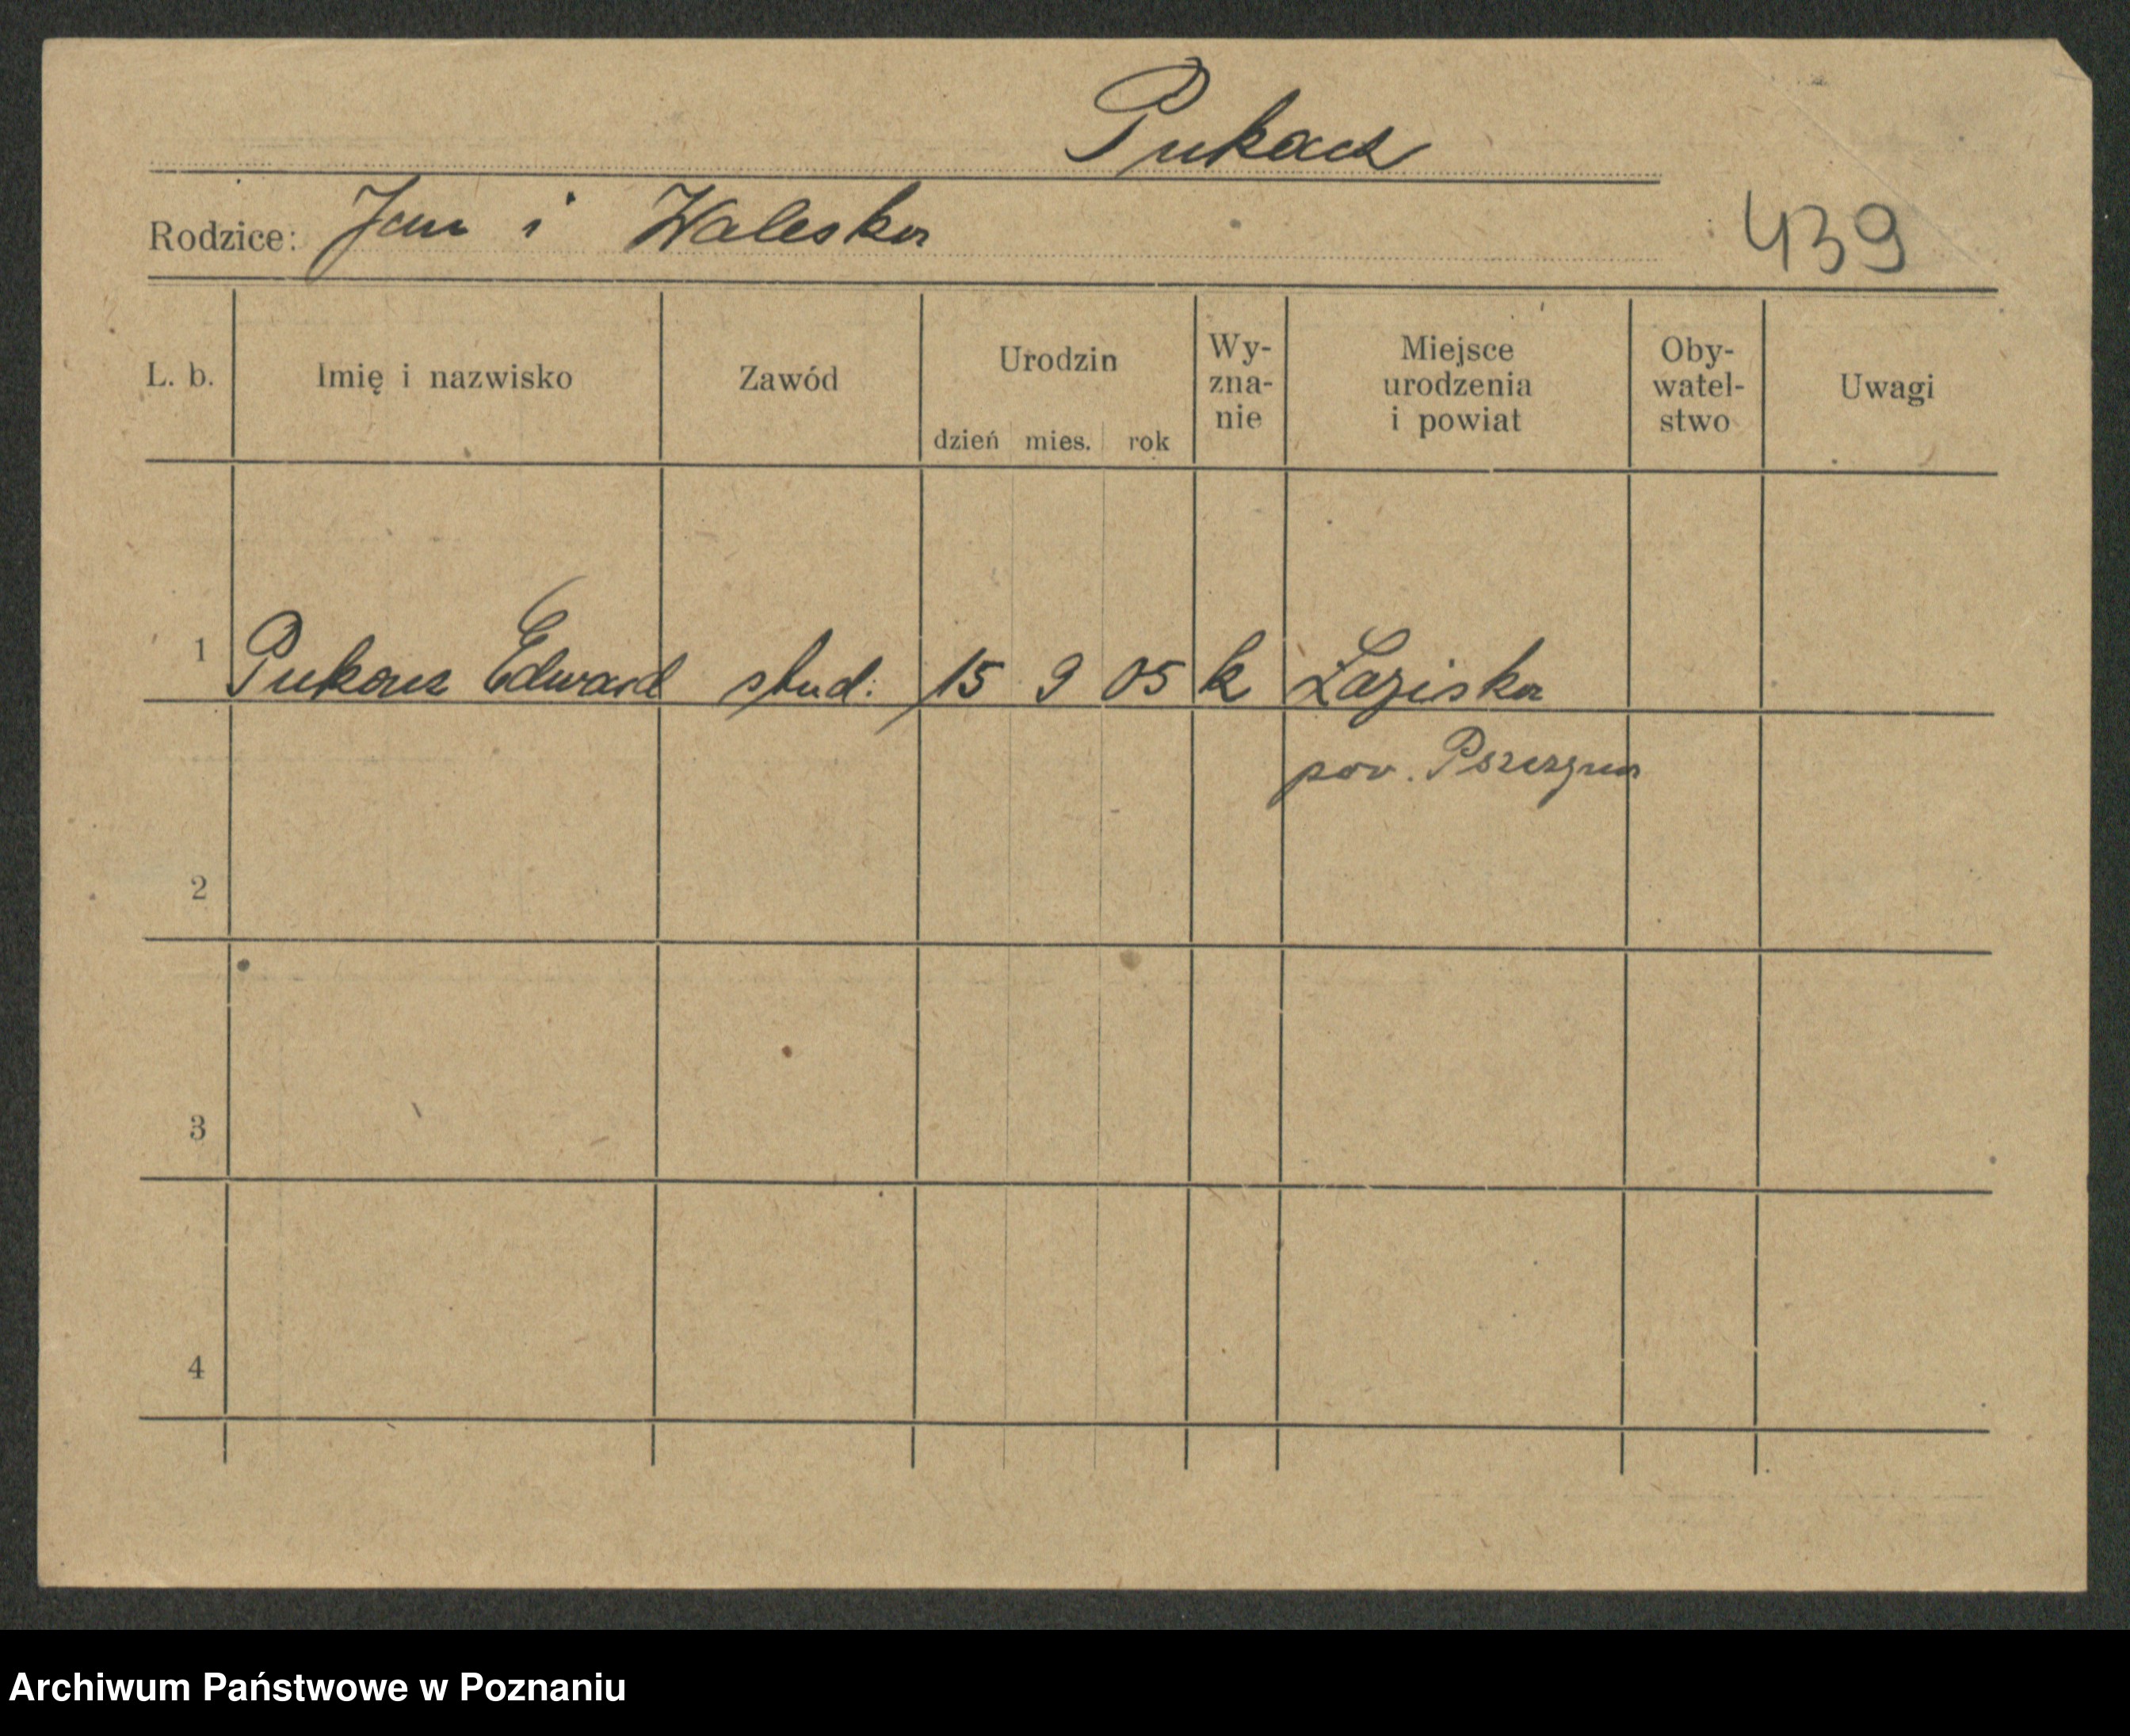 Pukacz
Rodzice: Jan i Waleska
439
L. b. Imię i nazwisko Zawód Urodzin dzień mies. rok Wy-zna-nie Miejsce urodzenia i powiat Oby-watel-stwo Uwagi
1 Pukacz Edward stud. 15 9 05 k Łaziska
pow. Pszczyna
2
3
4
Archiwum Państwowe w Poznaniu